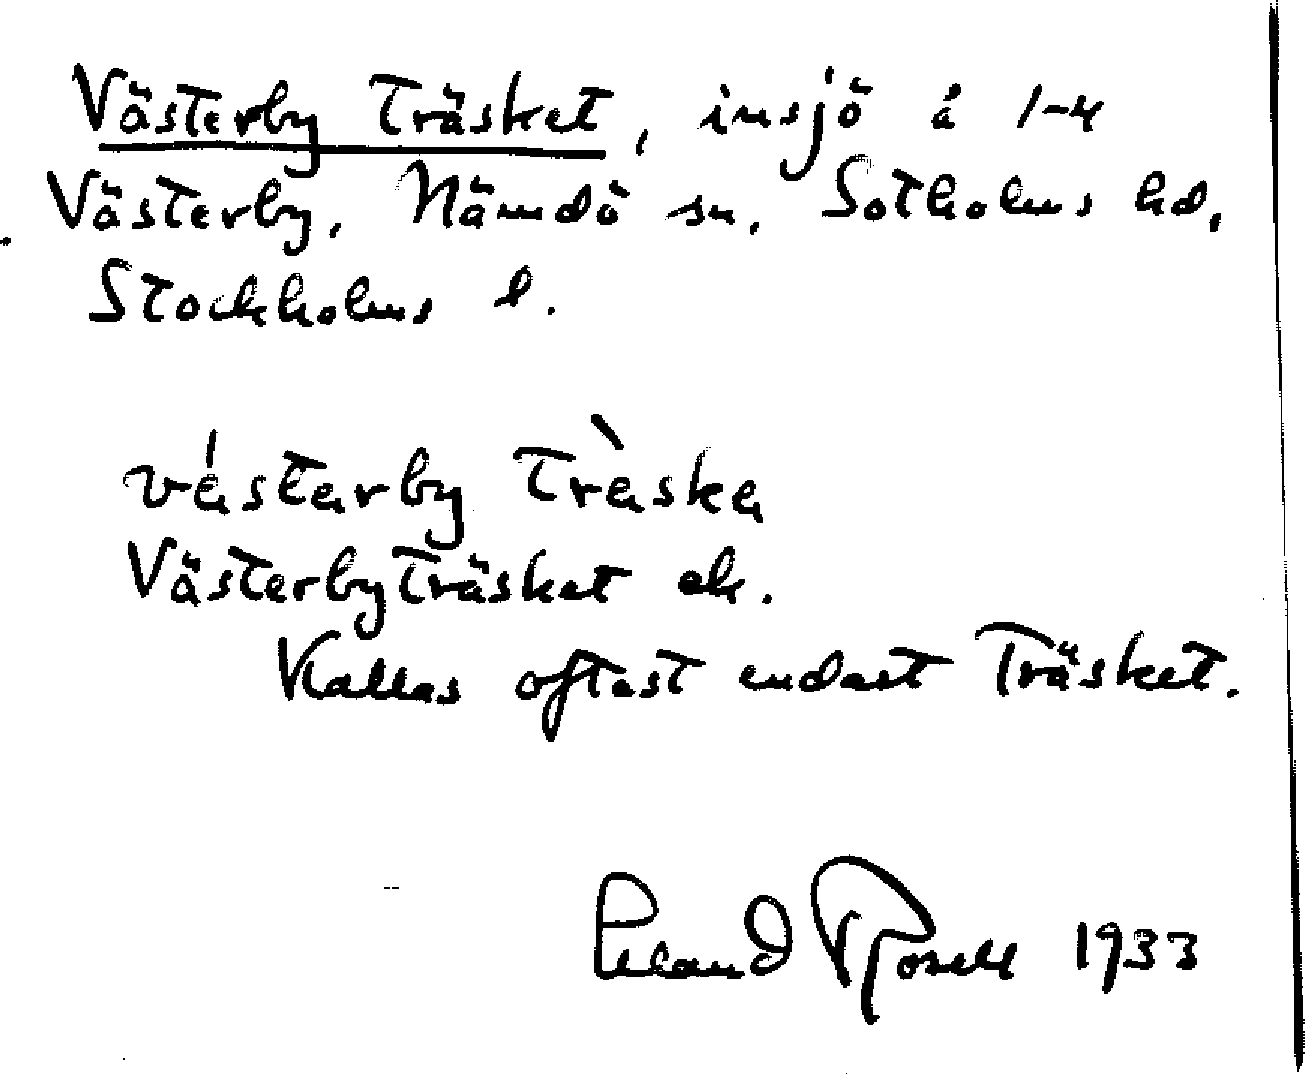 Västerby Träsket, insjö å 1-4
Västerby, Nämdö sn, Sotholms hd,
Stockholms l.
västarby Träska
VästerbyTräsket ek.
Kallas oftast endast Träsket.
Erland Rosell 1933